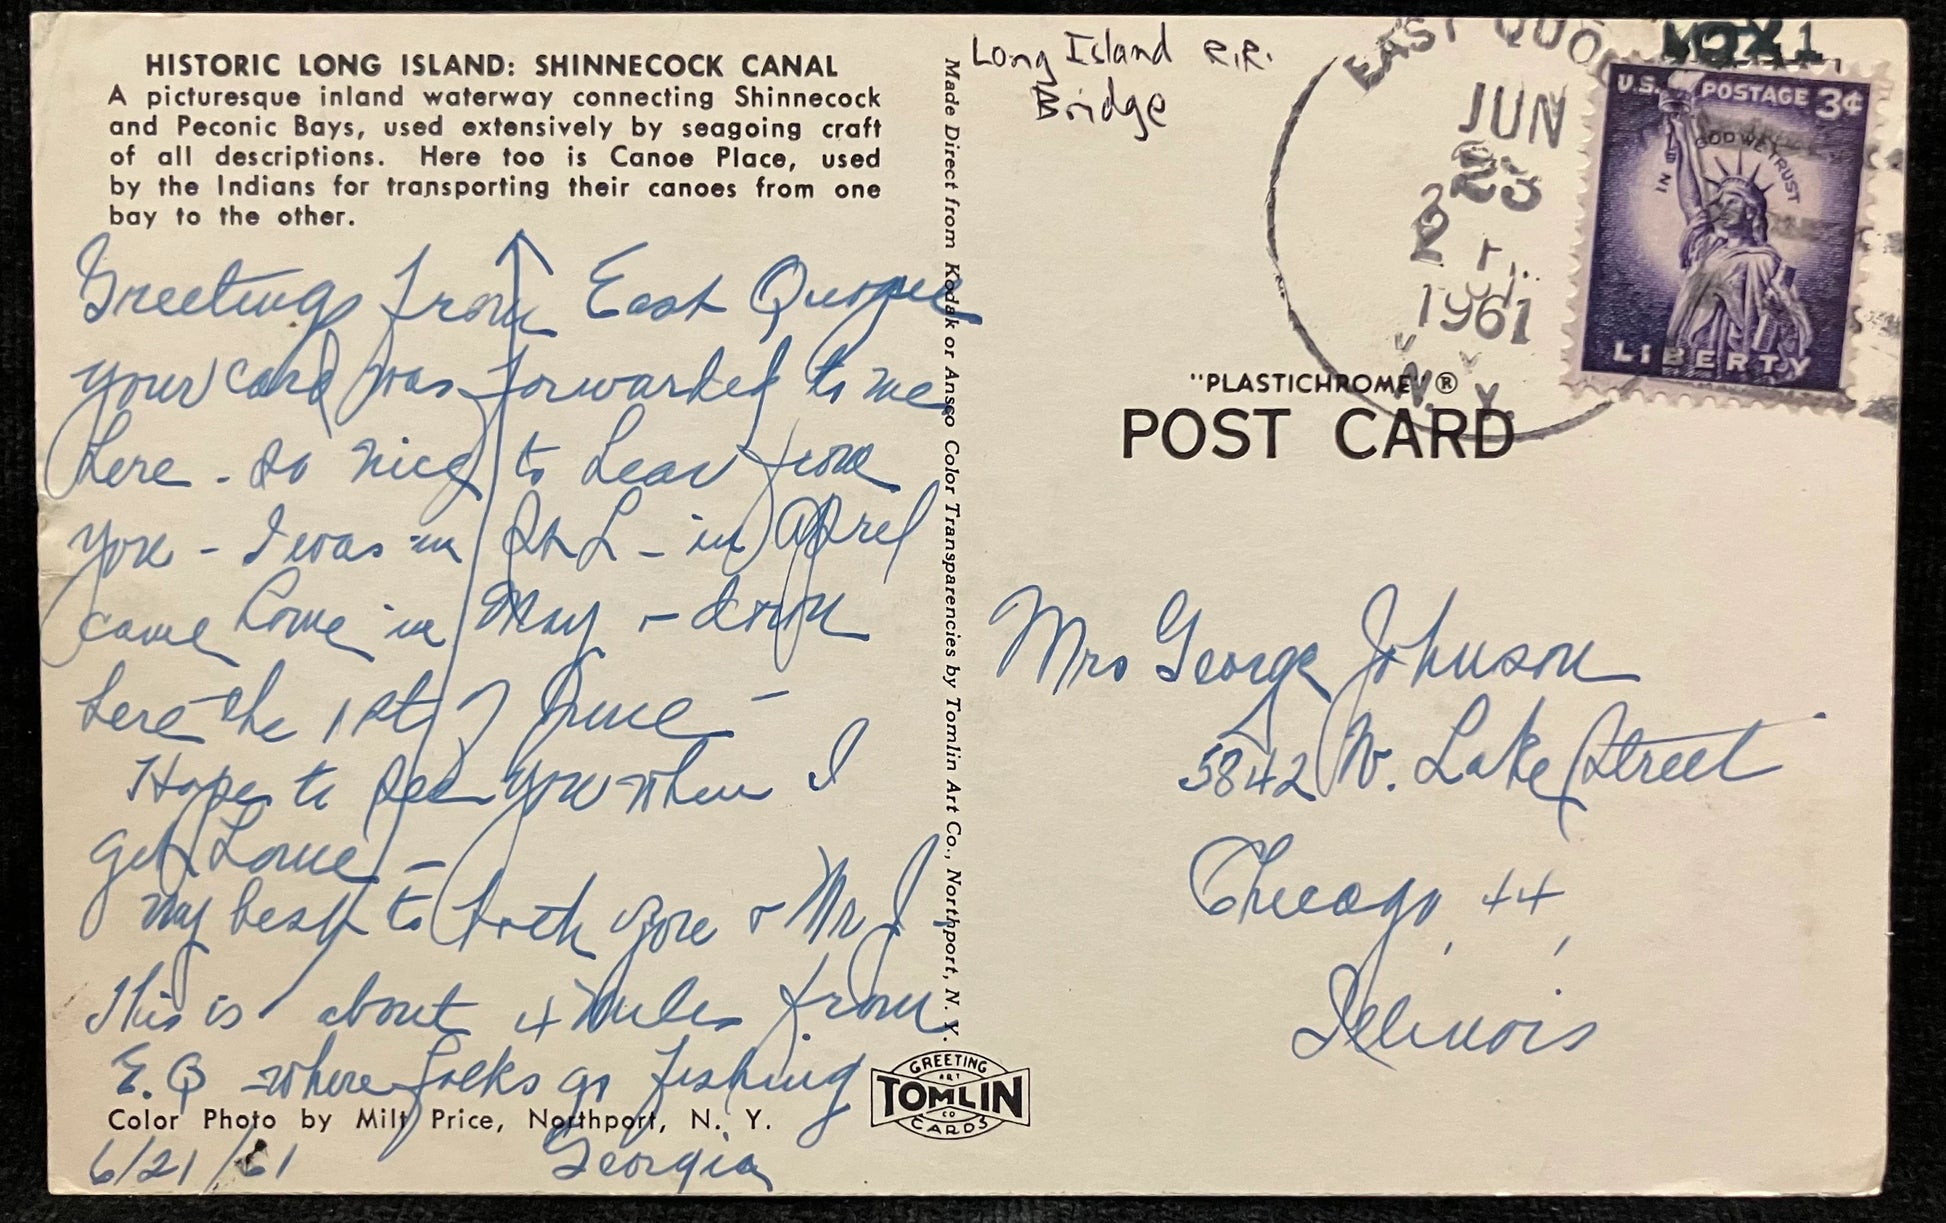 HISTORIC LONG ISLAND: SHINNECOCK CANAL
A picturesque inland waterway connecting Shinnecock
and Peconic Bays, used extensively by seagoing craft
of all descriptions. Here too is Canoe Place, used
by the Indians for transporting their canoes from one
bay to the other.
Greetings from East Quogue
your card was forwarded to me
here - so nice to hear from
you - I was in - in April
came home in May - down
here the 1st of June -
Hope to see you when I
get home -
my best to both you + Mr J
This is about 4 miles from
E.Q - where folks go fishing
Color Photo by Milt Price, Northport, N. Y.
6/21/61 Georgia
Made Direct from Kodak or Ansco Color Transparencies by Tomlin Art Co., Northport, N. Y.
GREETING
ART
TOMLIN
CO
CARDS
Long Island R.R.
Bridge
EAST QUO
JUN
23
2
1961
N. Y.
U.S. POSTAGE 3¢
IN GOD WE TRUST
LIBERTY
"PLASTICHROME" ®
POST CARD
Mrs George Johnson
5842 W. Lake Street
Chicago, 44,
Illinois